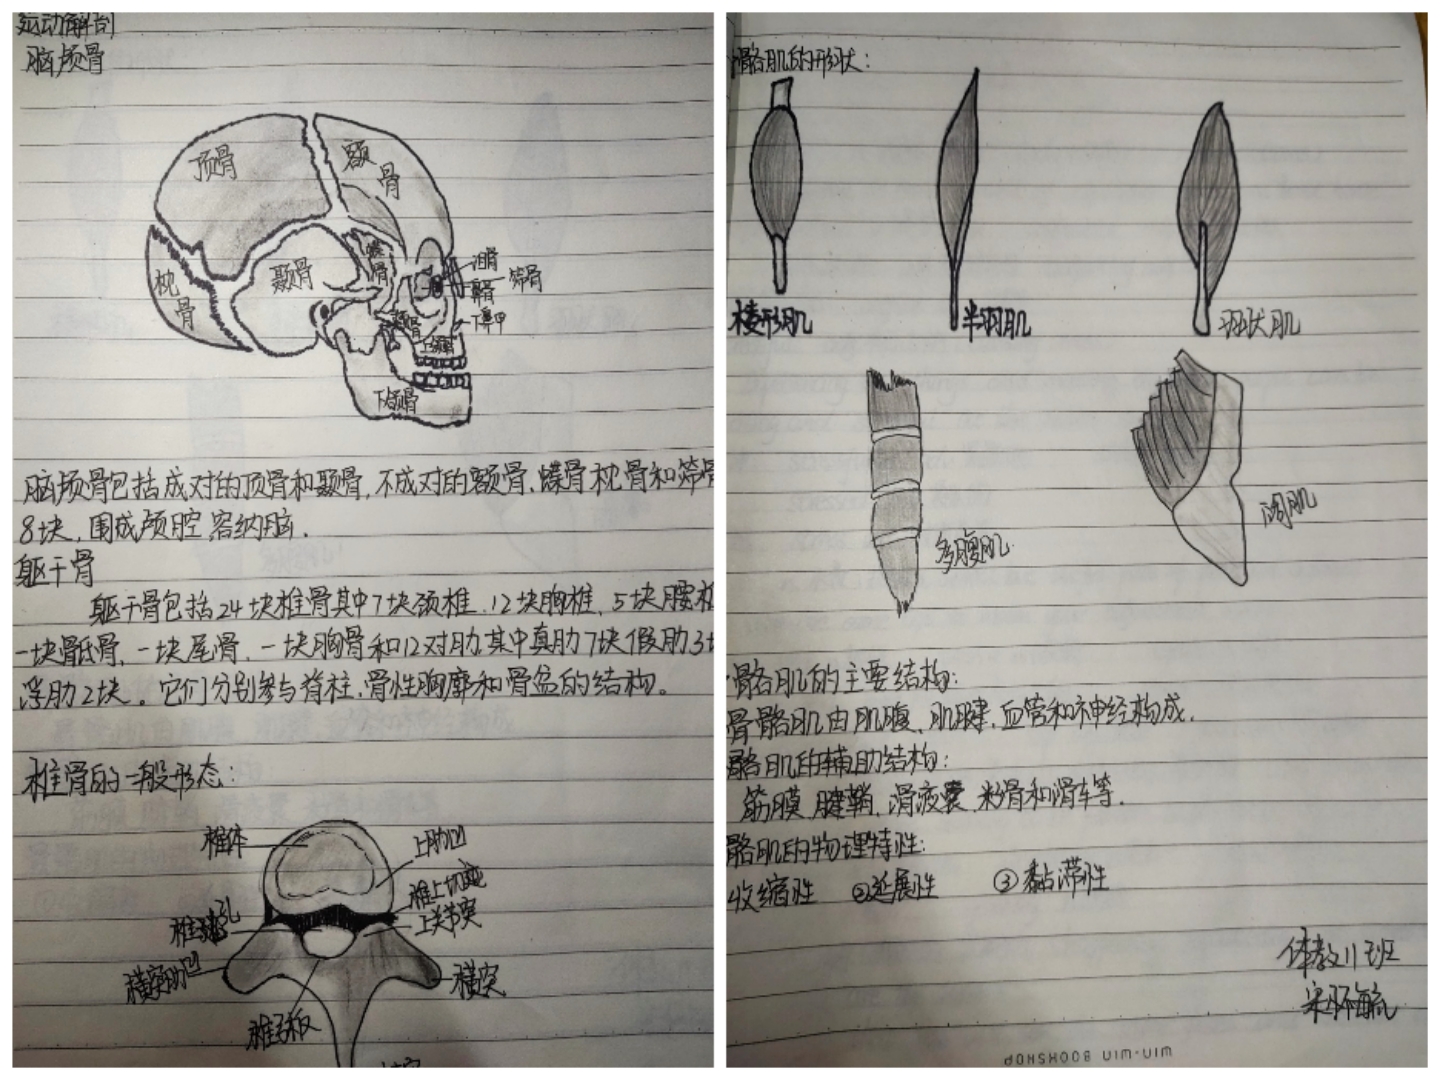 运动解剖
脑颅骨
顶骨
额骨
枕骨
颞骨
蝶骨
泪骨
鼻骨
筛骨
下鼻甲
颧骨
上颌骨
下颌骨
脑颅骨包括成对的顶骨和颞骨，不成对的额骨、蝶骨枕骨和筛骨
8块，围成颅腔容纳脑．
躯干骨
躯干骨包括24块椎骨其中7块颈椎、12块胸椎、5块腰椎
一块骶骨、一块尾骨、一块胸骨和12对肋其中真肋7块假肋3块
浮肋2块。它们分别参与脊柱、骨性胸廓和骨盆的结构。
椎骨的一般形态：
椎体
上肋凹
椎上切迹
椎孔
上关节突
横突肋凹
横突
椎弓板
骼肌的形状：
棱形肌
半羽肌
羽状肌
多腹肌
阔肌
骼肌的主要结构：
骨骼肌由肌腹、肌腱、血管和神经构成．
骼肌的辅助结构：
筋膜 腱鞘、滑液囊、籽骨和滑车等．
骼肌的物理特性：
收缩性 ②延展性 ③黏滞性
体教11班
WIN-WIN BOOKSHOP